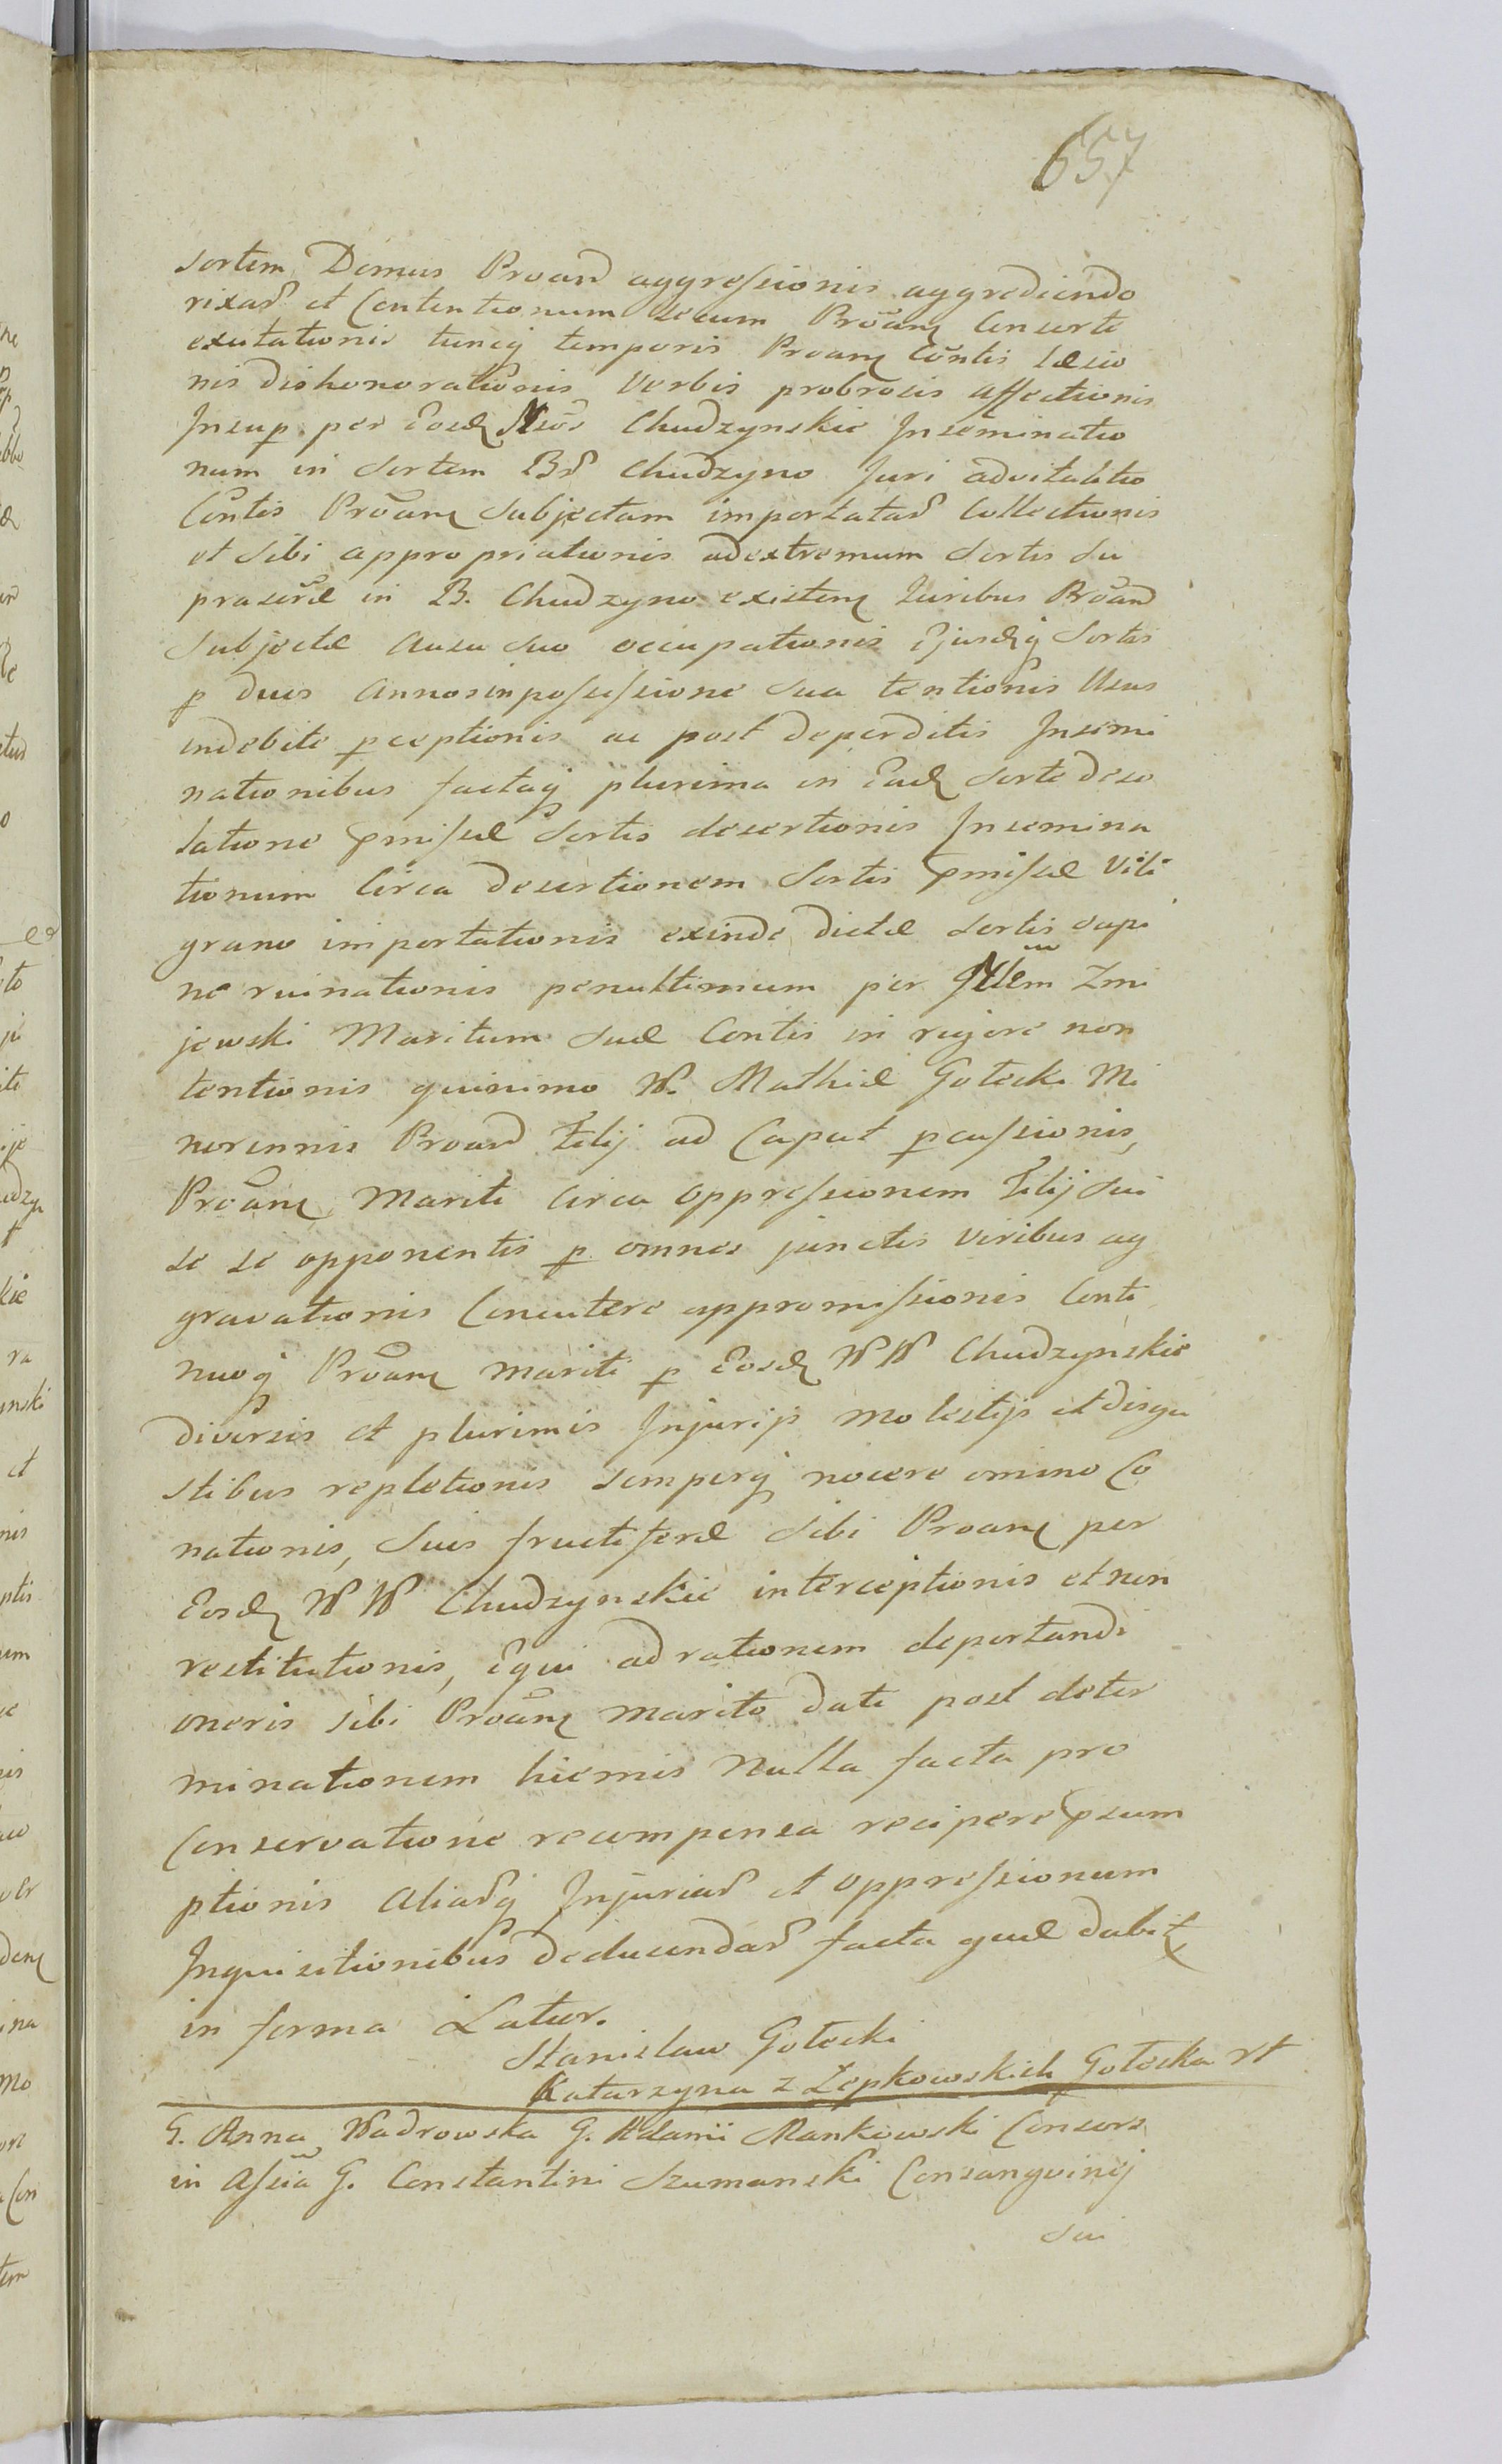 657
sortem Domus Proan̄ aggressionis aggrediendo
rixar̃ et Contentionum secum Proan̄ Consorte
excitationis tuncq̃ temporis Proan̄ Con̄tis Læsio
nis dishonorationis verbis probrosis affectionis
Insup per Eosd Chudzynskie Inseminatio
num in Sortem Br̃ Chudzyno Juri advitalitio
Con̄tis Proan̄ Subjectam importatar̃ Collectionis
et Sibi appropriationis ad extremum Sortis Su
prascr̃æ in B. Chudzyno existen̄ Juribus Proan̄
Subjectæ Ausu Suo occupationis Ejusdq̃ Sortis
p duos Annos in possessione Sua tentionis Usus
indebite pceptionis ac post deperditis Insemi
nationibus factaq̃ plurima in Ead Sorte deso
latione pmissæ Sortis desertionis Insemina
tionum Circa desertionem Sortis pmissæ Vili
grano importationis exinde dictæ Sortis supi
ne ruinationis penultimum per Zmi
jewski Maritum Suæ Contis in rigore non
tentionis quinimo W. Mathiæ Gołecki Mi
norennis Proan̄ Filij ad Caput pcussionis,
Proan̄ Mariti Circa Oppressionem Filij Sui
se se opponentis p omnes junctis viribus ag
gravationis Concutere appromissionis Conti
nuoq̃ Proan̄ Mariti p Eosd WW Chudzynskie
diversis et plurimis Injurijs Molestijs et disgu
stibus repletionis semperq̃ nocere omino Co
nationis, Suis fructiferæ Sibi Proan̄ per
Eosd WW Chudzynskie interceptionis et non
restitutionis, Equi ad rationem deportandi
oneris Sibi Proan̄ Marito dati post deter
minationem hiemis Nulla facta pro
Conservatione recompensa recipere psum
ptionis Aliar̃q̃ Injuriar̃ et Oppressionum
Inquisitionibus deducendar̃ facta quæ dabit
in forma Latior.
Stanisław Gołecki
Katarzyna z Łępkowskich Gołecka
G. Anna Wadrowska G. Adami Mankowski Consors
in Assia G. Constantini Szumanski Consanguinej
Sui